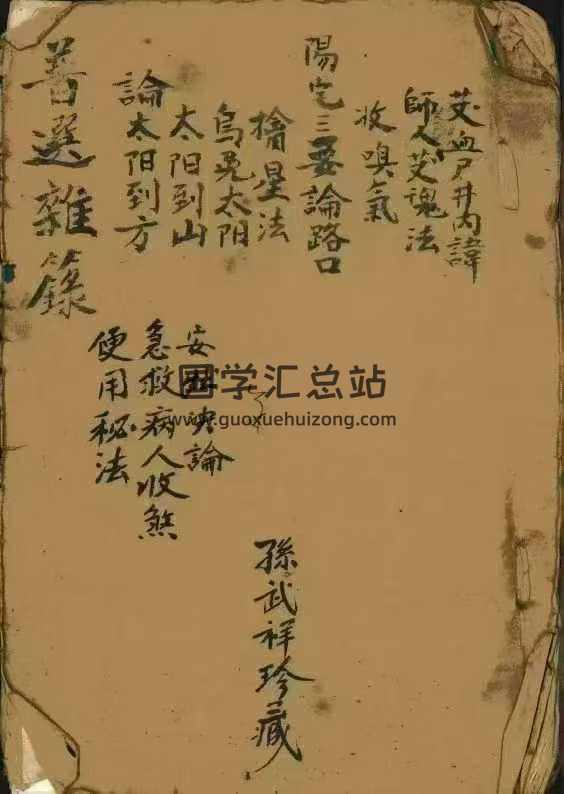 艾血尸井内諱
師人艾魂法
收嗅氣
陽宅三要論路口
擒星法
烏兎太阳
太阳到山
論太阳到方
善選雜籙
安 論
急救病人收煞
便用秘法
孫武祥珍藏
国学汇总站
www.guoxuehuizong.com